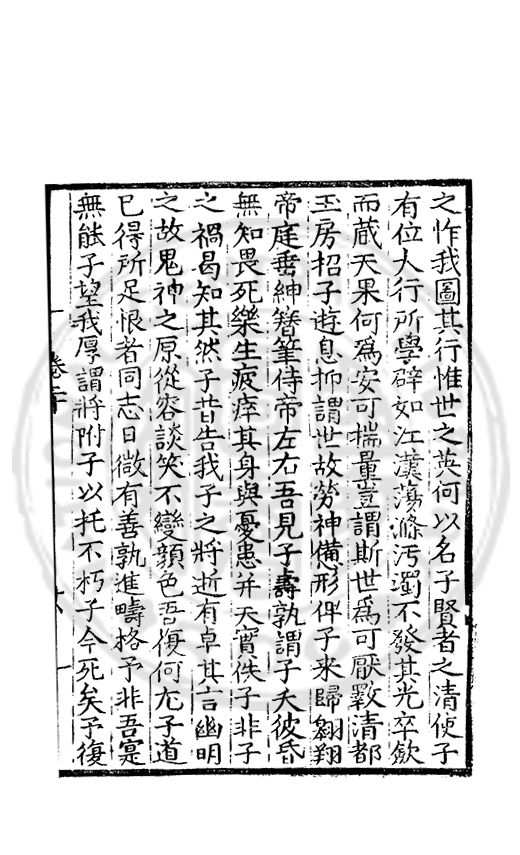 之怍我圖其行惟世之英何以名子賢者之清使子
有位大行所學辟如江漢蕩滌汚濁不發其光卒斂
而蔵天果何爲安可揣量豈謂斯世爲可厭斁清都
玉房招子遊息抑謂世故勞神憊形俾子来歸翱翔
帝庭垂紳簪筆侍帝左右吾見子壽孰謂子夭彼昏
無知畏死樂生疲痒其身與憂患并天實佚子非子
之禍曷知其然子昔告我子之將逝有卓其言幽明
之故鬼神之原從容談笑不變顔色吾復何尤子道
已得所足恨者同志日微有善孰進疇格予非吾寔
無能子望我厚謂將附子以托不朽子今死矣予復
卷二十